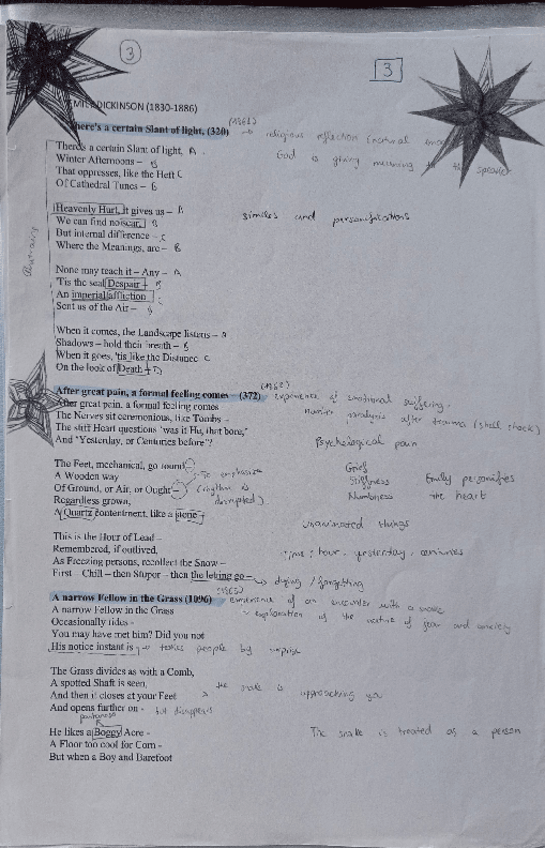 3
3
DICKINSON (1830-1886)
(1861)
There's a certain Slant of light, (320)
religious reflection (natural
God is giving meaning to the speaker
There's a certain Slant of light, A
Winter Afternoons – B
That oppresses, like the Heft C
Of Cathedral Tunes – B
Heavenly Hurt, it gives us – A
We can find no scar, B
But internal difference – C
Where the Meanings, are – B
similes and personifications
None may teach it – Any – A
'Tis the seal Despair – B
An imperial affliction C
Sent us of the Air – B
When it comes, the Landscape listens – A
Shadows – hold their breath – B
When it goes, 'tis like the Distance C
On the look of Death – D
(1862)
After great pain, a formal feeling comes (372)
experience of emotional suffering.
analysis after trauma (shell shock)
After great pain, a formal feeling comes
The Nerves sit ceremonious, like Tombs –
The stiff Heart questions 'was it He, that bore,'
And 'Yesterday, or Centuries before'?
Psychological pain
The Feet, mechanical, go round –
A Wooden way
Of Ground, or Air, or Ought –
Regardless grown,
A Quartz contentment, like a stone –
to emphasize
(rhythm is
disrupted)
Grief
Stiffness
Numbness
Emily personifies
the heart
Unanimated things
This is the Hour of Lead –
Remembered, if outlived,
As Freezing persons, recollect the Snow –
First – Chill – then Stupor – then the letting go –
time: hour, yesterday, centuries
dying / forgetting
(1865)
A narrow Fellow in the Grass (1096)
experience of an encounter with a snake
exploration of the nature of fear and anxiety
A narrow Fellow in the Grass
Occasionally rides -
You may have met him? Did you not
His notice instant is - takes people by surprise
The Grass divides as with a Comb,
A spotted Shaft is seen,
And then it closes at your Feet
And opens further on - but disappears
the snake is approaching you
He likes a Boggy Acre -
A Floor too cool for Corn -
But when a Boy and Barefoot
The snake is treated as a person